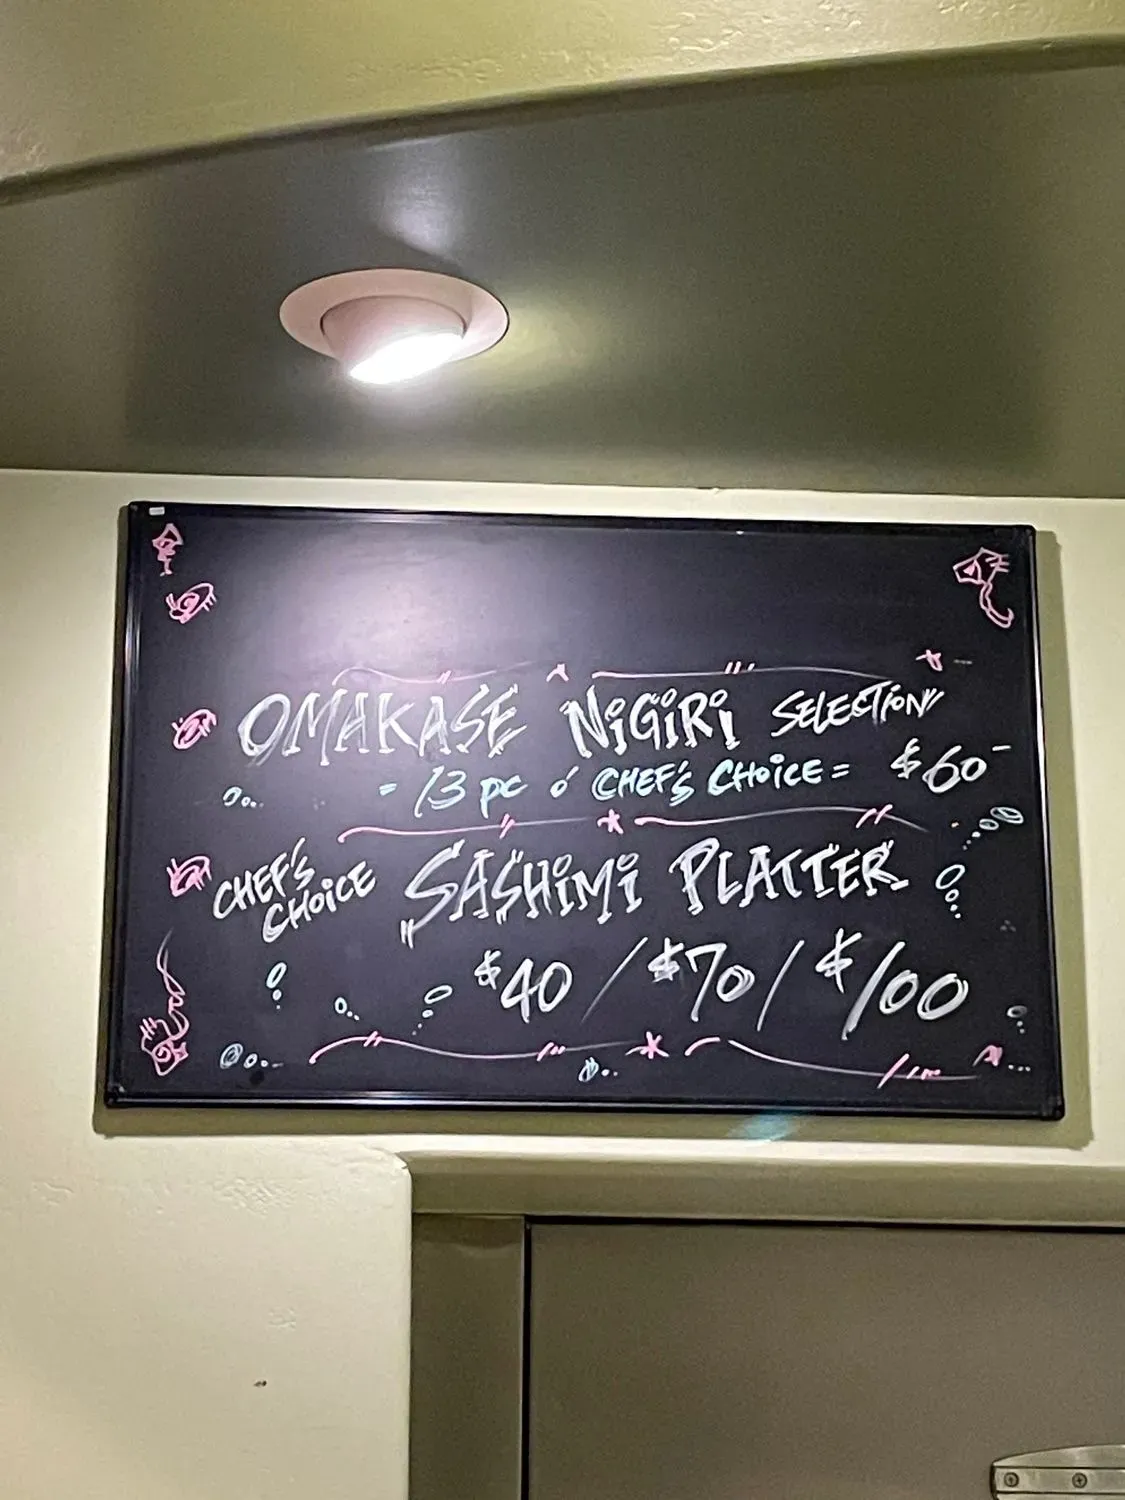 OMAKASE NiGiRi SELECTION
= 13 pc o' CHEF'S CHOiCE = $60-
CHEF'S CHOiCE SASHiMi PLATTER
$40 / $70 / $100